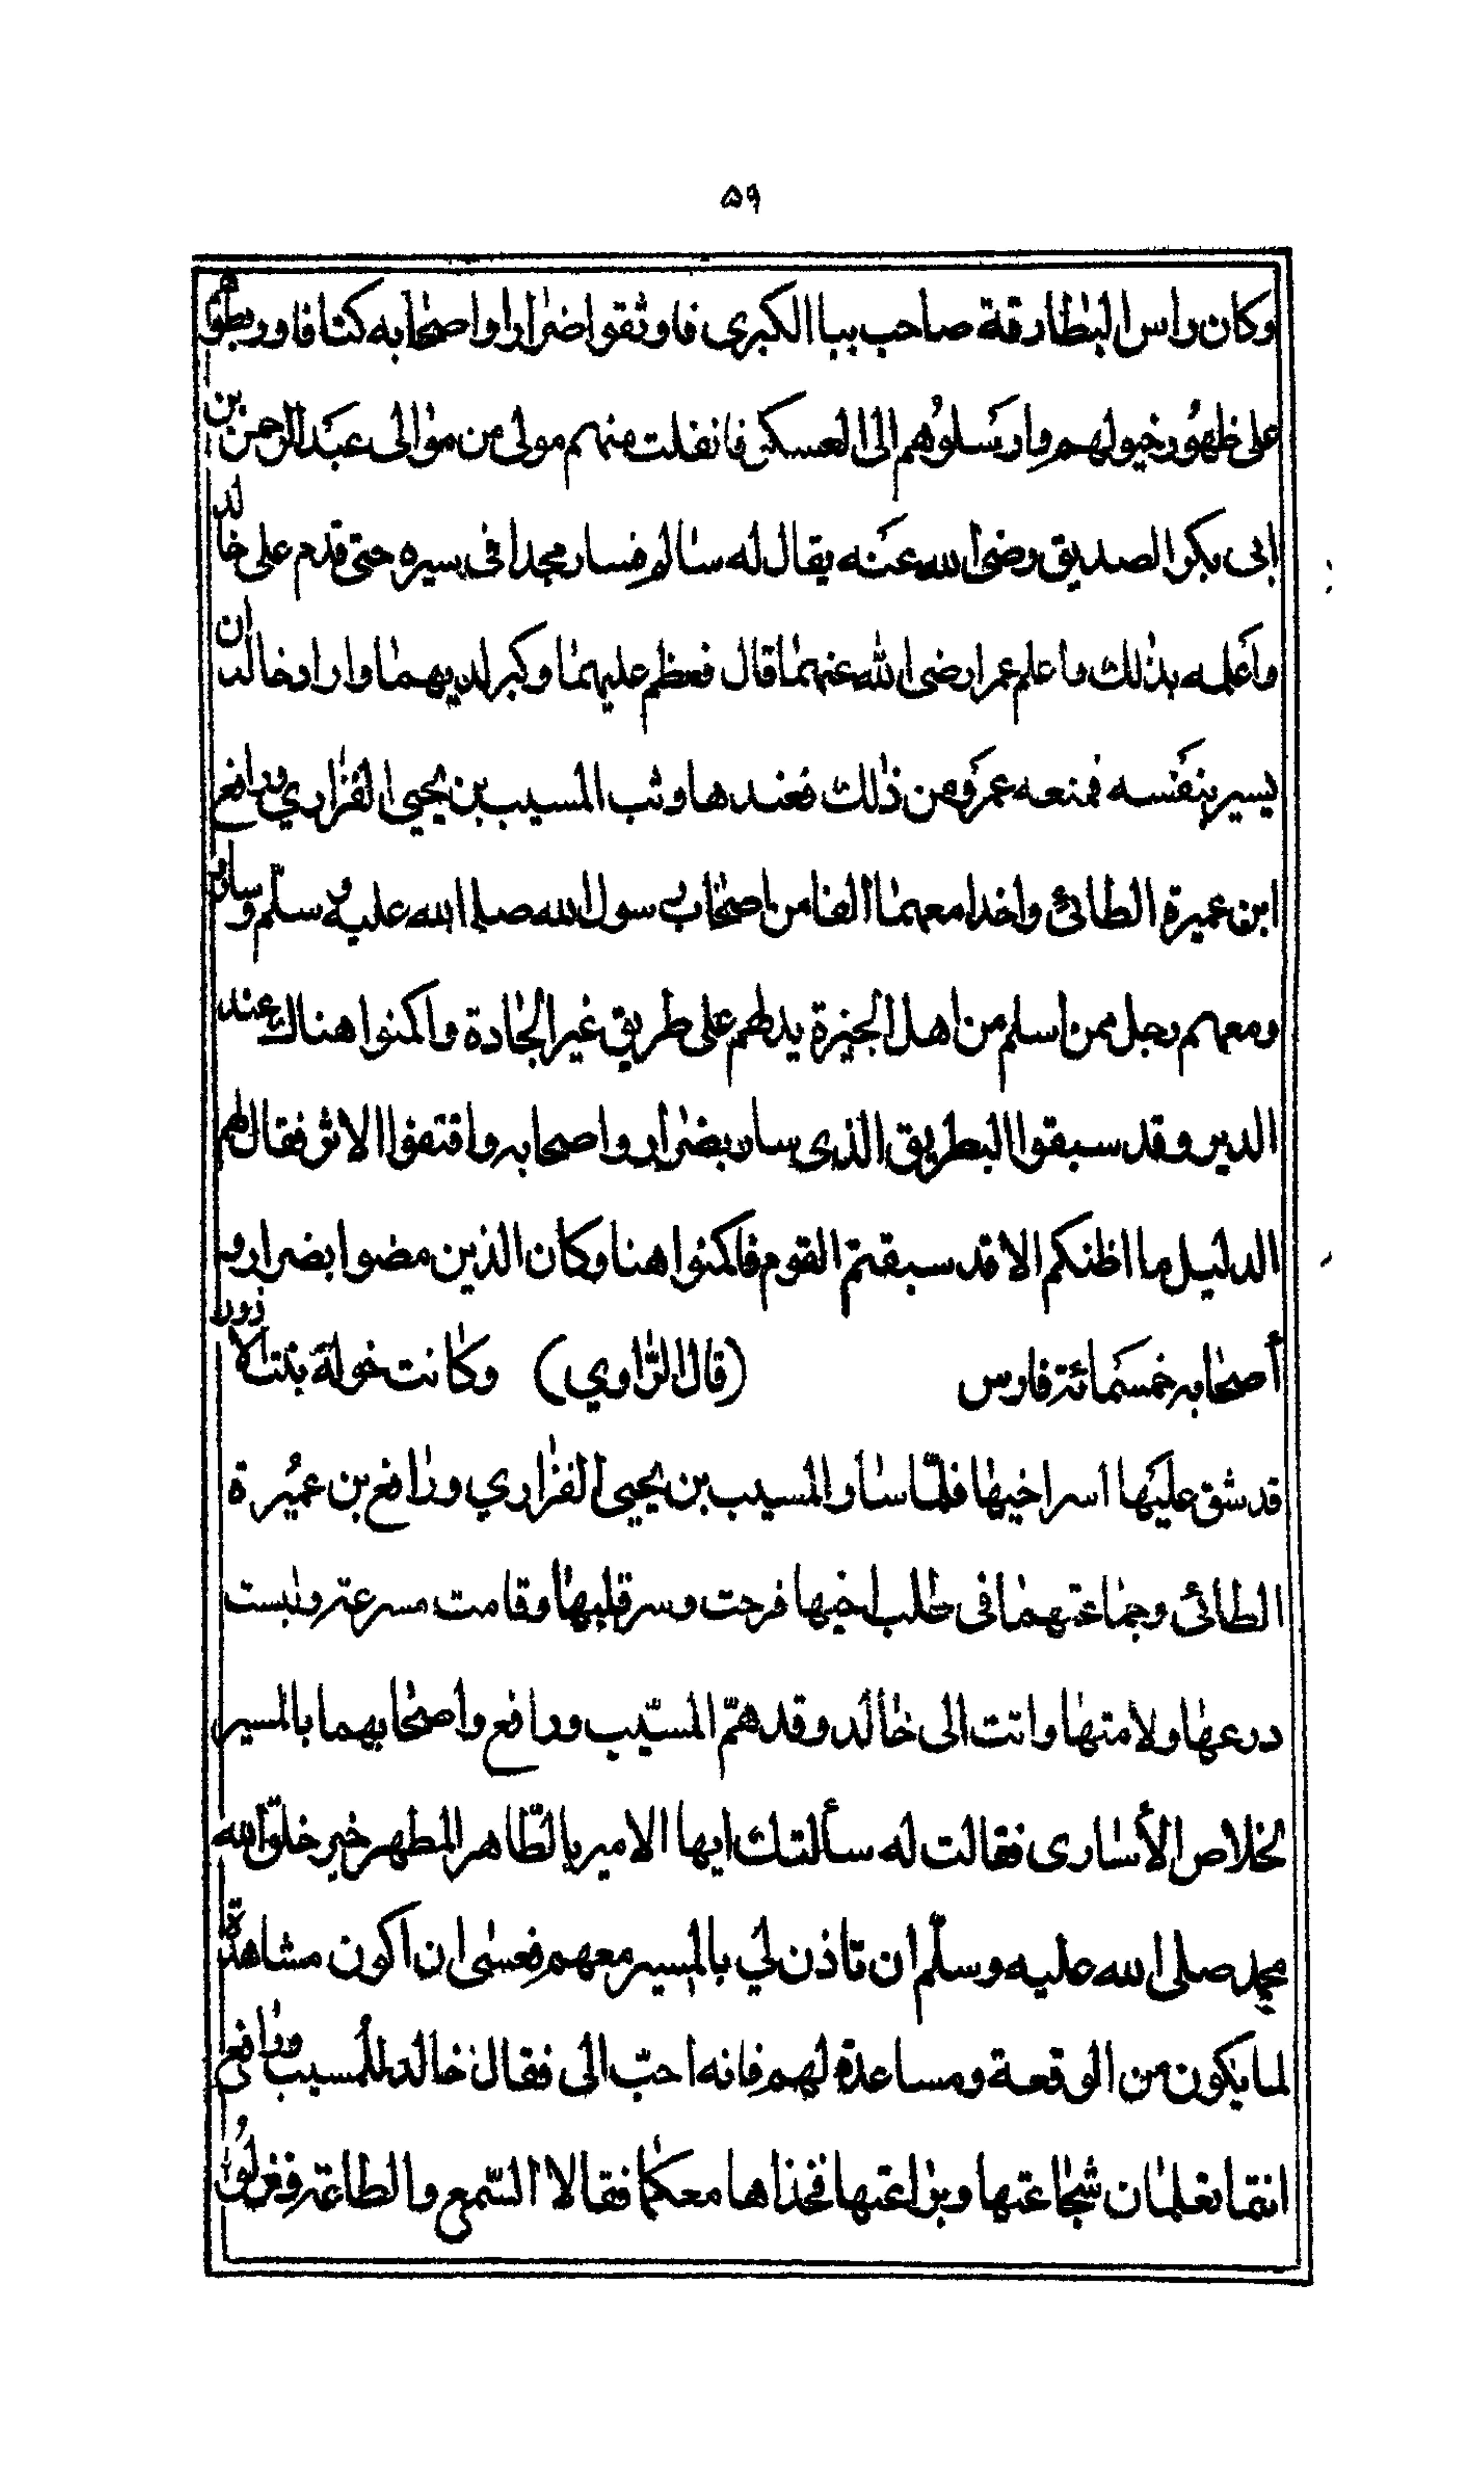 ٥٩
وكان راس البطارقة صاحب ببا الكبرى فاوثقوا ضرارا واصحابه كتافا وربطوهم
على ظهور خيولهم وارسلوهم الى العسكر فانفلت منهم مولى من موالى عبد الرحمن بن
ابى بكر الصديق رضى الله عنه يقال له سالم فسار مجدا فى سيره حتى قدم على خالد
واعلمه بذلك واعلم عمرا رضى الله عنهما قال فعظم عليهما وكبر لديهما واراد خالد ان
يسير بنفسه فمنعه عمرو من ذلك فعندها وثب المسيب بن يحيى الفزاري ورافع
ابن عميرة الطائى واخدا معهما الفا من اصحاب رسول الله صلى الله عليه وسلّم وساروا
ومعهم رجل ممن اسلم من اهل الجيزة يدلهم على طريق غير الجادة واكمنوا هناك عند
الدير وقد سبقوا البطريق الذى سار بضرار واصحابه واقتفوا الاثر فقال لهم
الدليل ما اظنكم الا قد سبقتم القوم فاكمنوا هنا وكان الذين مضوا بضرار و
أصحابه خمسمائة فارس (قال الرّاوي) وكانت خولة بنت الازور
قد شق عليها اسر اخيها فلمّا سار المسيب بن يحيى الفزاري ورافع بن عميرة
الطائى وجماعتهما فى طلب اخيها فرحت وسر قلبها وقامت مسرعة ولبست
درعها ولامتها واتت الى خالد وقد همّ المسيّب ورافع واصحابهما بالمسير
لخلاص الأسارى فقالت له سألتك ايها الامير بالطّاهر المطهر خير خلق الله
محمد صلى الله عليه وسلّم ان تاذن لي بالمسير معهم فعسى ان اكون مشاهدة
لما يكون من الوقعة ومساعدة لهم فانه احبّ الى فقال خالد للمسيب ورافع
انتما تعلمان شجاعتها وبراعتها فخذاها معكما فقالا السّمع والطاعة ونزلوا